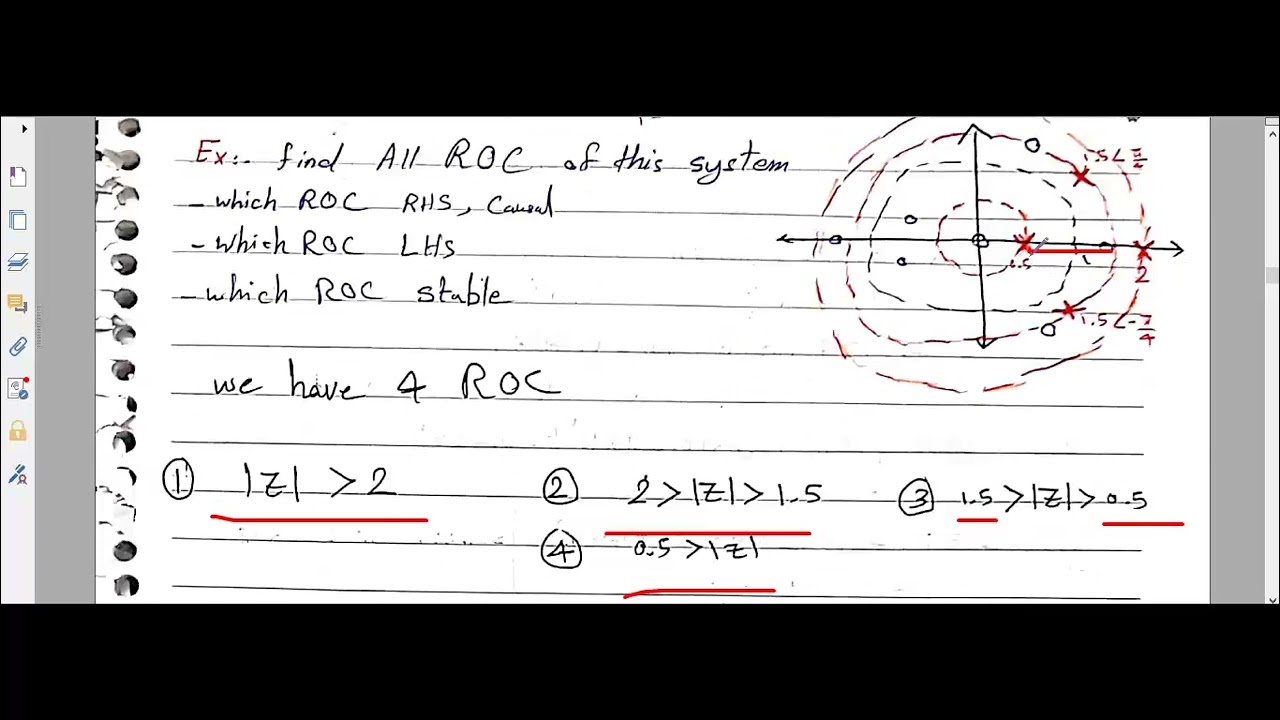 Ex:- find All ROC of this system
- which ROC RHS, Causal
- which ROC LHS
- which ROC stable
1.5∠π/4
0.5
1
2
1.5∠-π/4
we have 4 ROC
① |z| > 2
② 2 > |z| > 1.5
③ 1.5 > |z| > 0.5
④ 0.5 > |z|